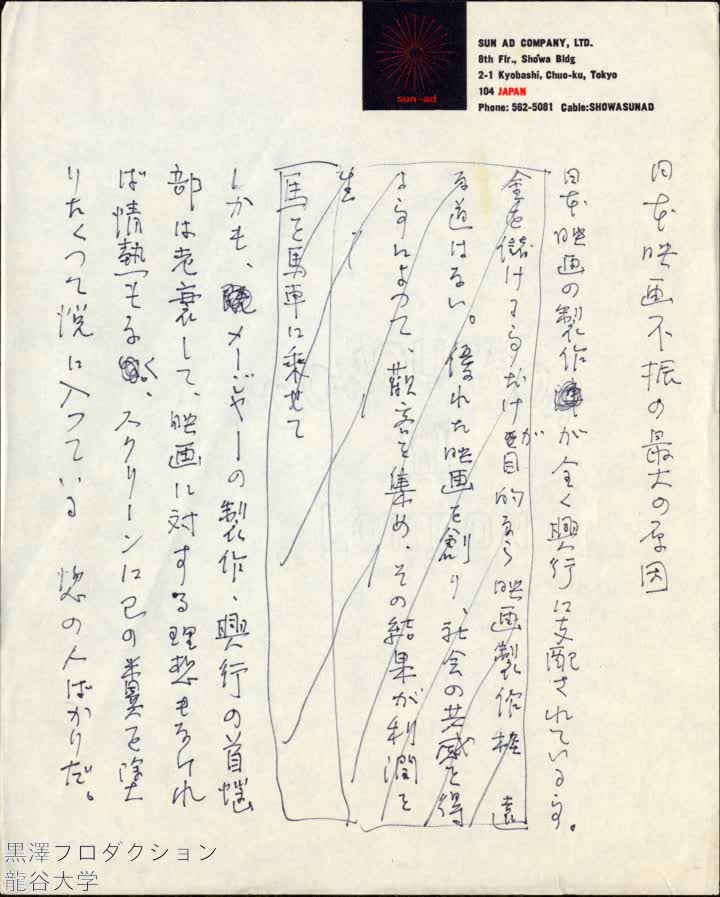 SUN AD COMPANY, LTD.
8th Flr., Showa Bldg
2-1 Kyobashi, Chuo-ku, Tokyo
104 JAPAN
Phone: 562-5081 Cable:SHOWASUNAD
sun-ad
日本映画不振の最大の原因
日本映画の製作が全く興行に支配されている事。
金を儲ける事だけが目的なら映画製作程 遠
な道はない。優れた映画を創り、社会の共感を得
る事によつて、観客を集め、その結果が利潤を
生
馬を馬車に乗せて
しかも、メージャーの製作、興行の首脳
部は老衰して、映画に対する理想もなけれ
ば情熱もなく、スクリーンに己の糞を塗
りたくつて悦に入つている 惚の人ばかりだ。
黒澤プロダクション
龍谷大学